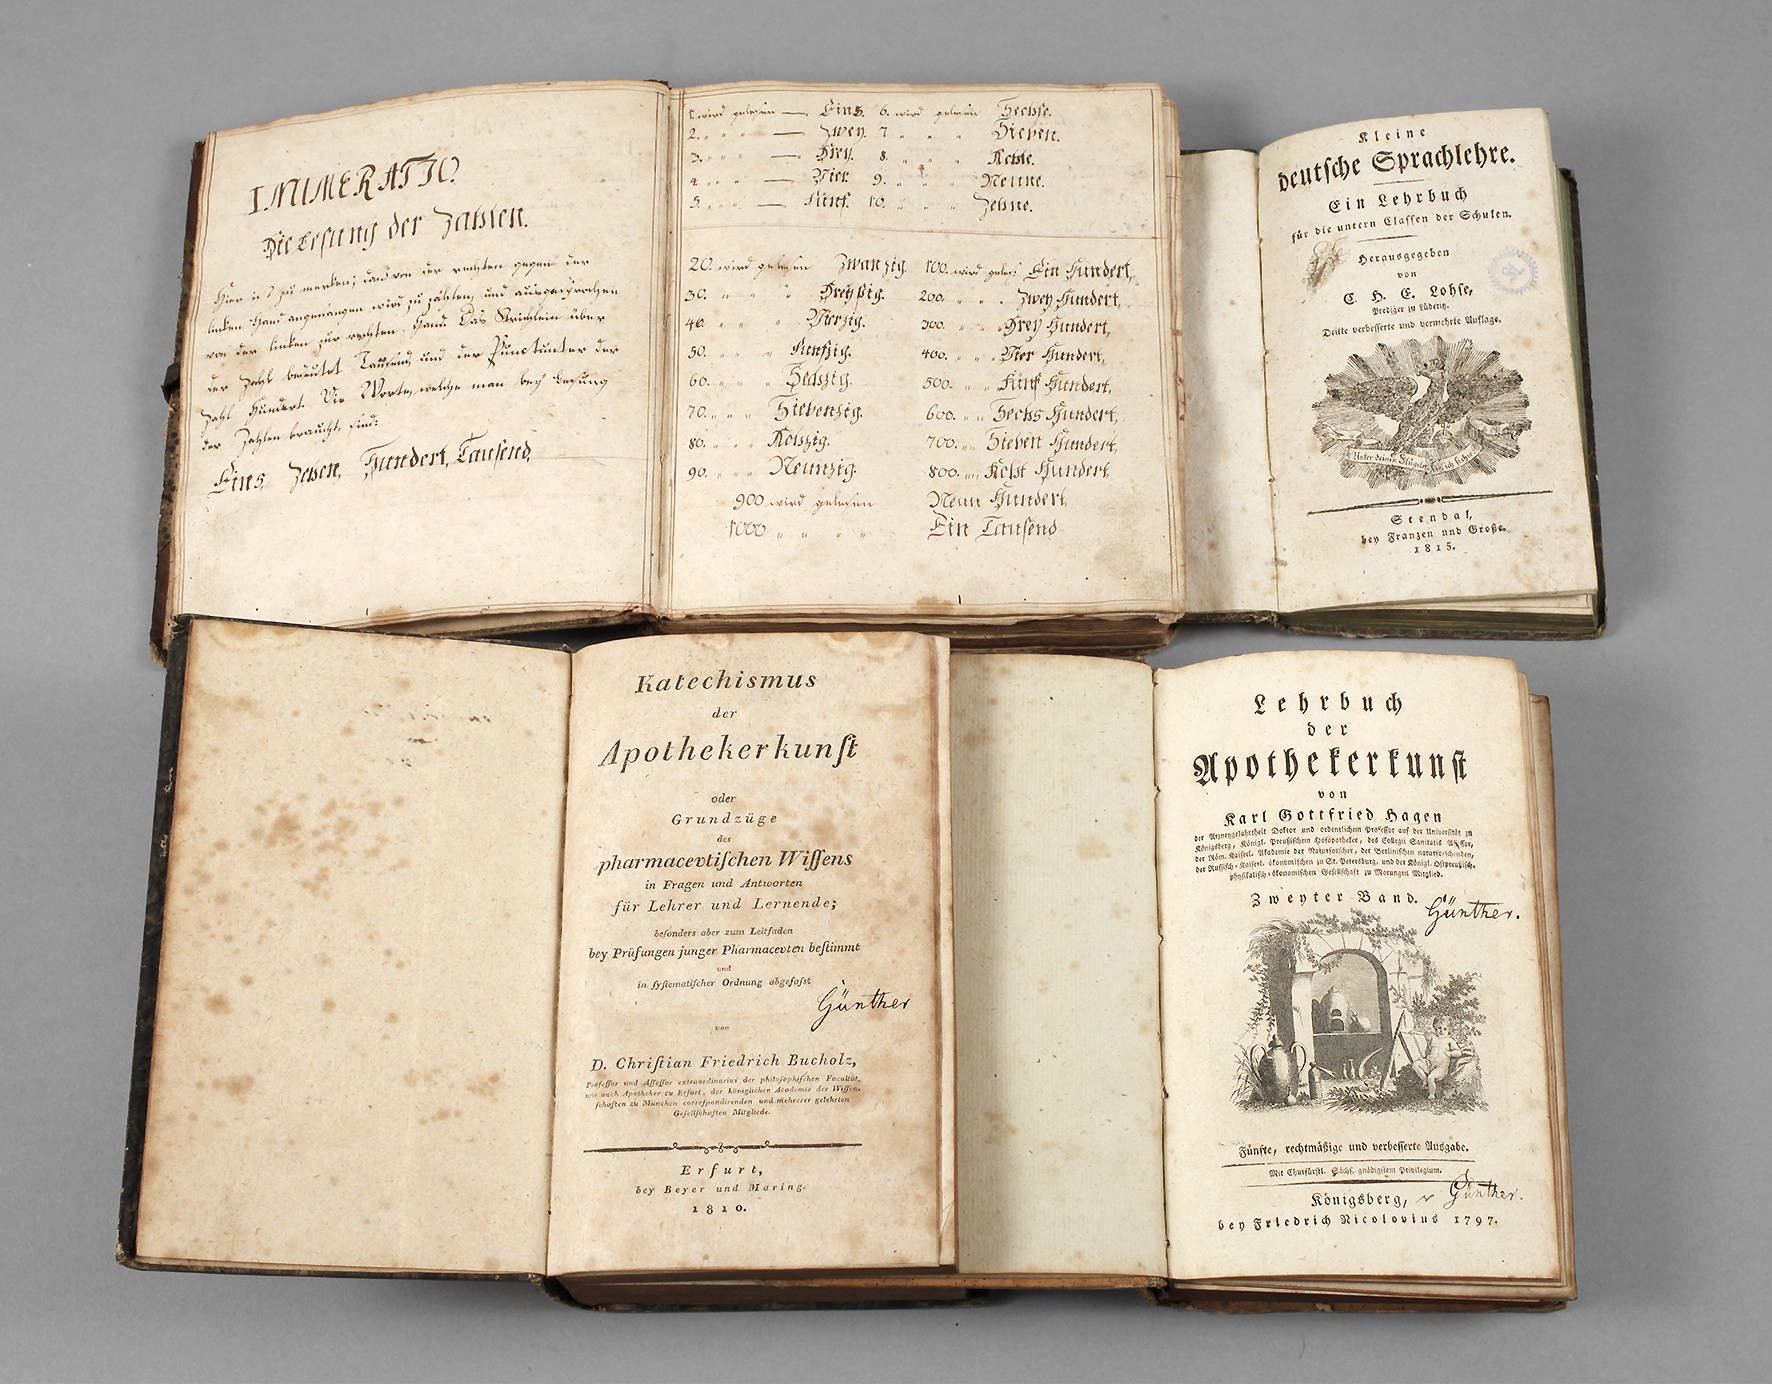 INUMERATIO
Die Lesung der Zahlen.
Hier ist zu merken, das von der rechten gegen der
linken Hand angefangen wird zu zählen, und ausgesprochen
von der linken zur rechten Hand. Das Strichlein über
der Zahl bedeutet Tausend, und der Punct unter der
Zahl Hundert. Die Worte, welche man bey Lesung
der Zahlen braucht, sind:
Eins, Zehen, Hundert, Tausend,
1. wird gelesen — Eins. 6. wird gelesen Sechse.
2. " " " — Zwey. 7. " " " Sieben.
3. " " " — Drey. 8. " " " Achte.
4. " " " — Vier. 9. " " " Neune.
5. " " " — Fünf. 10. " " " Zehne.
20. wird gelesen Zwanzig. 100. wird geles: Ein Hundert,
30. " " " Dreyßig. 200. " " " Zwey Hundert,
40. " " " Vierzig. 300. " " " Drey Hundert,
50. " " " Funfzig. 400. " " " Vier Hundert,
60. " " " Sechszig. 500. " " " Fünf Hundert,
70. " " " Siebenzig. 600. " " " Sechs Hundert,
80. " " " Achtzig. 700. " " " Sieben Hundert,
90. " " " Neunzig. 800. " " " Acht Hundert,
900 wird gelesen Neun Hundert,
1000 " " " " Ein Tausend
Kleine
deutſche Sprachlehre.
Ein Lehrbuch
für die untern Claſſen der Schulen.
Herausgegeben
von
C. H. E. Lohſe,
Prediger zu Lüderitz.
Dritte verbeſſerte und vermehrte Auflage.
Unter deinen Flügeln
Stendal,
bey Franzen und Große.
1815.
Katechismus
der
Apothekerkunſt
oder
Grundzüge
des
pharmacevtiſchen Wiſſens
in Fragen und Antworten
für Lehrer und Lernende;
beſonders aber zum Leitfaden
bey Prüfungen junger Pharmacevten beſtimmt
und
in ſyſtematiſcher Ordnung abgefaſst
Günther
von
D. Chriſtian Friedrich Bucholz,
Profeſſor und Aſſeſſor extraordinarius der philoſophiſchen Facultät,
wie auch Apotheker zu Erfurt, der königlichen Academie der Wiſſen-
ſchaften zu München correſpondirenden und mehrerer gelehrten
Geſellſchaften Mitgliede.
Erfurt,
bey Beyer und Maring.
1810.
Lehrbuch
der
Apothekerkunſt
von
Karl Gottfried Hagen
der Arzneygelahrtheit Doktor und ordentlichem Profeſſor auf der Univerſität zu
Königsberg, Königl. Preußiſchem Hofapotheker, des Collegii Sanitatis Aſſeſſor,
der Röm. Kaiſerl. Akademie der Naturforſcher, der Berliniſchen naturforſchenden,
der Ruſſiſch-Kaiſerl. ökonomiſchen zu St. Petersburg, und der Königl. Oſtpreußiſch.
phyſikaliſch-ökonomiſchen Geſellſchaft zu Morungen Mitglied.
Zweyter Band.
Günther.
Fünfte, rechtmäßige und verbeſſerte Ausgabe.
Mit Churfürſtl. Sächſ. gnädigſtem Privilegium.
Königsberg,
Günther.
bey Friedrich Nicolovius 1797.